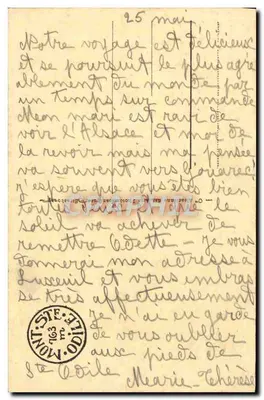 25 mai
Notre voyage est délicieux
et se poursuit le plus agré
ablement du monde par
un temps sur commande
Mon mari est ravi de
voir l'Alsace et moi de
la revoir mais ma pensée
va souvent vers
J'espère que vous êtes bien
toutes et que le
soleil va achever de
remettre Odette - je vous
donnerai mon adresse à
Luxeuil et vous embras
se très affectueusement
je n'ai eu garde
de vous oublier
aux pieds de
Ste Odile
Marie-Thérèse
MONT-STE-ODILE
763 m